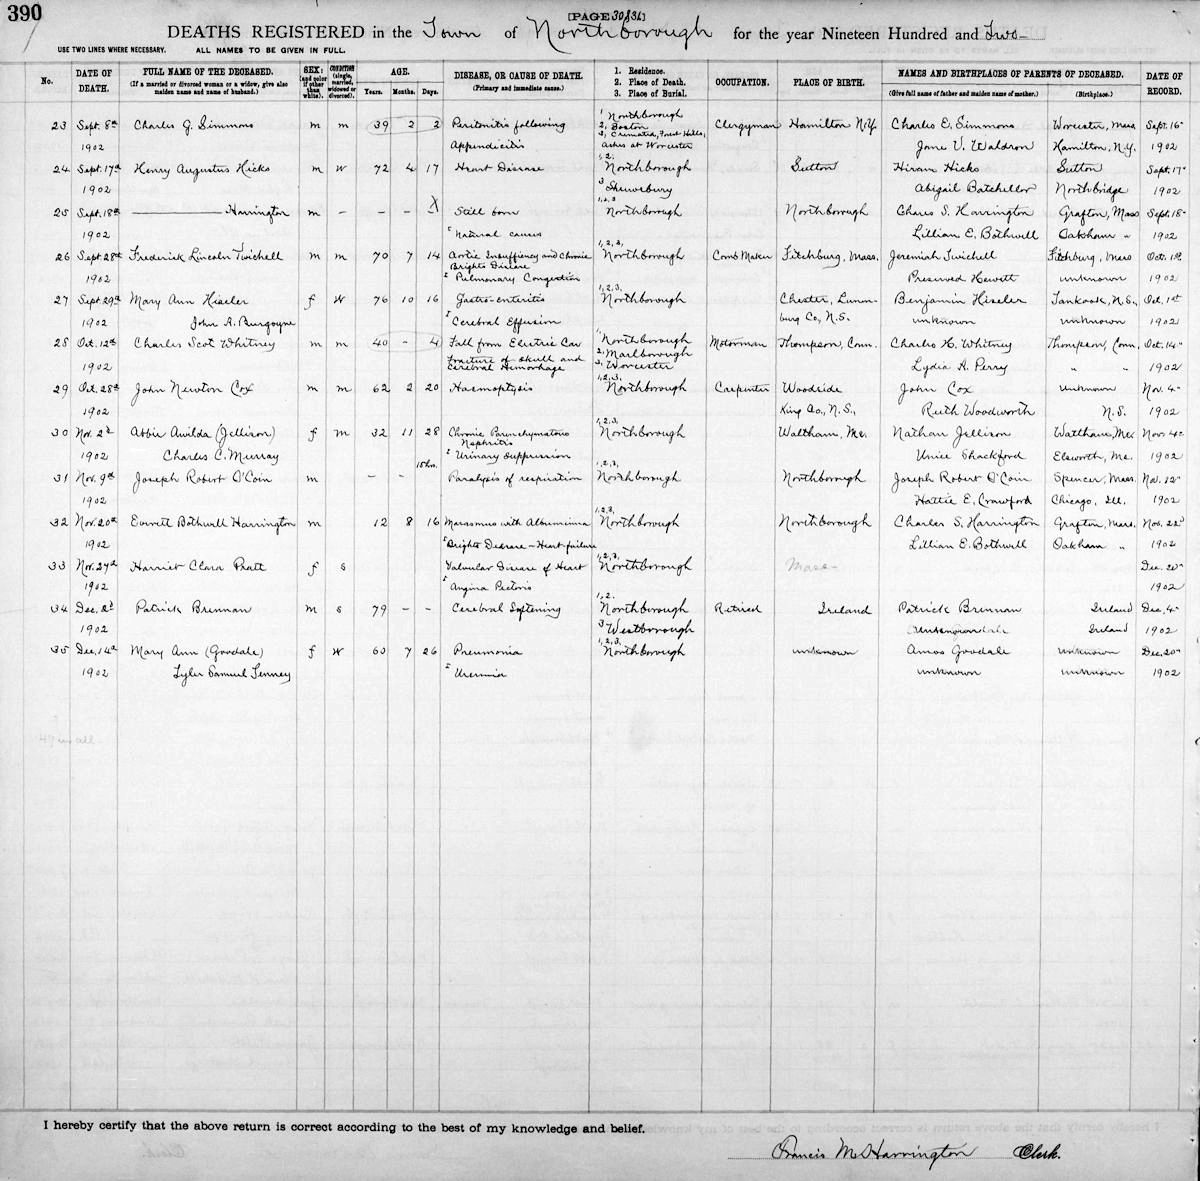 390
[PAGE 30831]
DEATHS REGISTERED in the Town of Northborough for the year Nineteen Hundred and Two
USE TWO LINES WHERE NECESSARY. ALL NAMES TO BE GIVEN IN FULL.
No. DATE OF DEATH. FULL NAME OF THE DECEASED. (If a married or divorced woman or a widow, give also maiden name and name of husband.) SEX; (and color if other than white). CONDITION (single, married, widowed or divorced). AGE. Years. Months. Days. DISEASE, OR CAUSE OF DEATH. (Primary and immediate cause.) 1. Residence. 2. Place of Death. 3. Place of Burial. OCCUPATION. PLACE OF BIRTH. NAMES AND BIRTHPLACES OF PARENTS OF DECEASED. (Give full name of father and maiden name of mother.) (Birthplace.) DATE OF RECORD.
23 Sept. 8th Charles G. Simmons m m 39 2 2 Peritonitis following 1 Northborough 2, Boston 3, Cremated, Forest Hills, Clergyman Hamilton N.Y. Charles E. Simmons Worcester, Mass Sept. 16"
1902 Appendicitis ashes at Worcester Jane V. Waldron Hamilton, N.Y. 1902
24 Sept. 17th Henry Augustus Hicks m W 72 4 17 Heart Disease 1,2. Northborough Sutton Hiram Hicks Sutton Sept. 17"
1902 3 Shrewsbury Abigail Batchellor Northbridge 1902
25 Sept. 18th Harrington m - - - X Still born 1,2,3 Northborough Northborough Charles S. Harrington Grafton, Mass Sept. 18"
1902 2 Natural causes Lillian E. Bothwell Oakham " 1902
26 Sept. 28th Frederick Lincoln Twichell m m 70 7 14 Aortic Insufficiency and Chronic Brights Disease 1,2,3, Northborough Comb Maker Fitchburg, Mass. Jeremiah Twichell Fitchburg, Mass Oct. 1st
1902 2 Pulmonary Congestion Preserved Hewett unknown 1902
27 Sept. 29th Mary Ann Hiseler f W 76 10 16 Gastro-enteritis 1,2,3. Northborough Chester, Lunen- Benjamin Hiseler Tankook, N.S., Oct. 1st
1902 John A. Burgoyne 2 Cerebral Effusion burg Co, N.S. unknown unknown 1902
28 Oct. 12th Charles Scot Whitney m m 40 - 4 Fall from Electric Car 1, Northborough Motorman Thompson, Conn. Charles H. Whitney Thompson, Conn. Oct. 14"
1902 Fracture of skull and Cerebral Hemorrhage 2, Marlborough 3, Worcester Lydia A. Perry " " 1902
29 Oct. 28th John Newton Cox m m 62 2 20 Haemoptysis 1,2,3. Northborough Carpenter Woodside John Cox unknown Nov. 4"
1902 King Co., N.S., Ruth Woodworth N.S. 1902
30 Nov. 2d Abbie Awilda (Jellison) f m 32 11 28 Chronic Parenchymatous Nephritis 1,2,3, Northborough Waltham, Me. Nathan Jellison Waltham, Me. Nov. 4"
1902 Charles C. Murray 2 Urinary suppression Unice Shackford Elsworth, Me. 1902
31 Nov. 9th Joseph Robert O'Coin m - - 15 hrs. Paralysis of respiration 1,2,3, Northborough Northborough Joseph Robert O'Coin Spencer, Mass. Nov. 12"
1902 Hattie E. Crawford Chicago, Ill. 1902
32 Nov. 20th Everett Bothwell Harrington m 12 8 16 Marasmus with Albuminuria 1,2,3, Northborough Northborough Charles S. Harrington Grafton, Mass. Nov. 22d
1902 2 Brights Disease - Heart failure Lillian E. Bothwell Oakham " 1902
33 Nov. 27th Harriet Clara Pratt f s Valvular Disease of Heart 1,2,3, Northborough Mass- Dec. 20"
1902 2 Angina Pectoris 1902
34 Dec. 2d Patrick Brennan m s 79 - - Cerebral Softening 1,2. Northborough Retired Ireland Patrick Brennan Ireland Dec. 4"
1902 3 Westborough unknown Ireland 1902
35 Dec. 14th Mary Ann (Goodale) f W 60 7 26 Pneumonia 1,2,3. Northborough unknown Amos Goodale unknown Dec. 20th
1902 Tyler Samuel Tenney 2 Uremia unknown unknown 1902
I hereby certify that the above return is correct according to the best of my knowledge and belief.
Francis McHarrington Clerk.